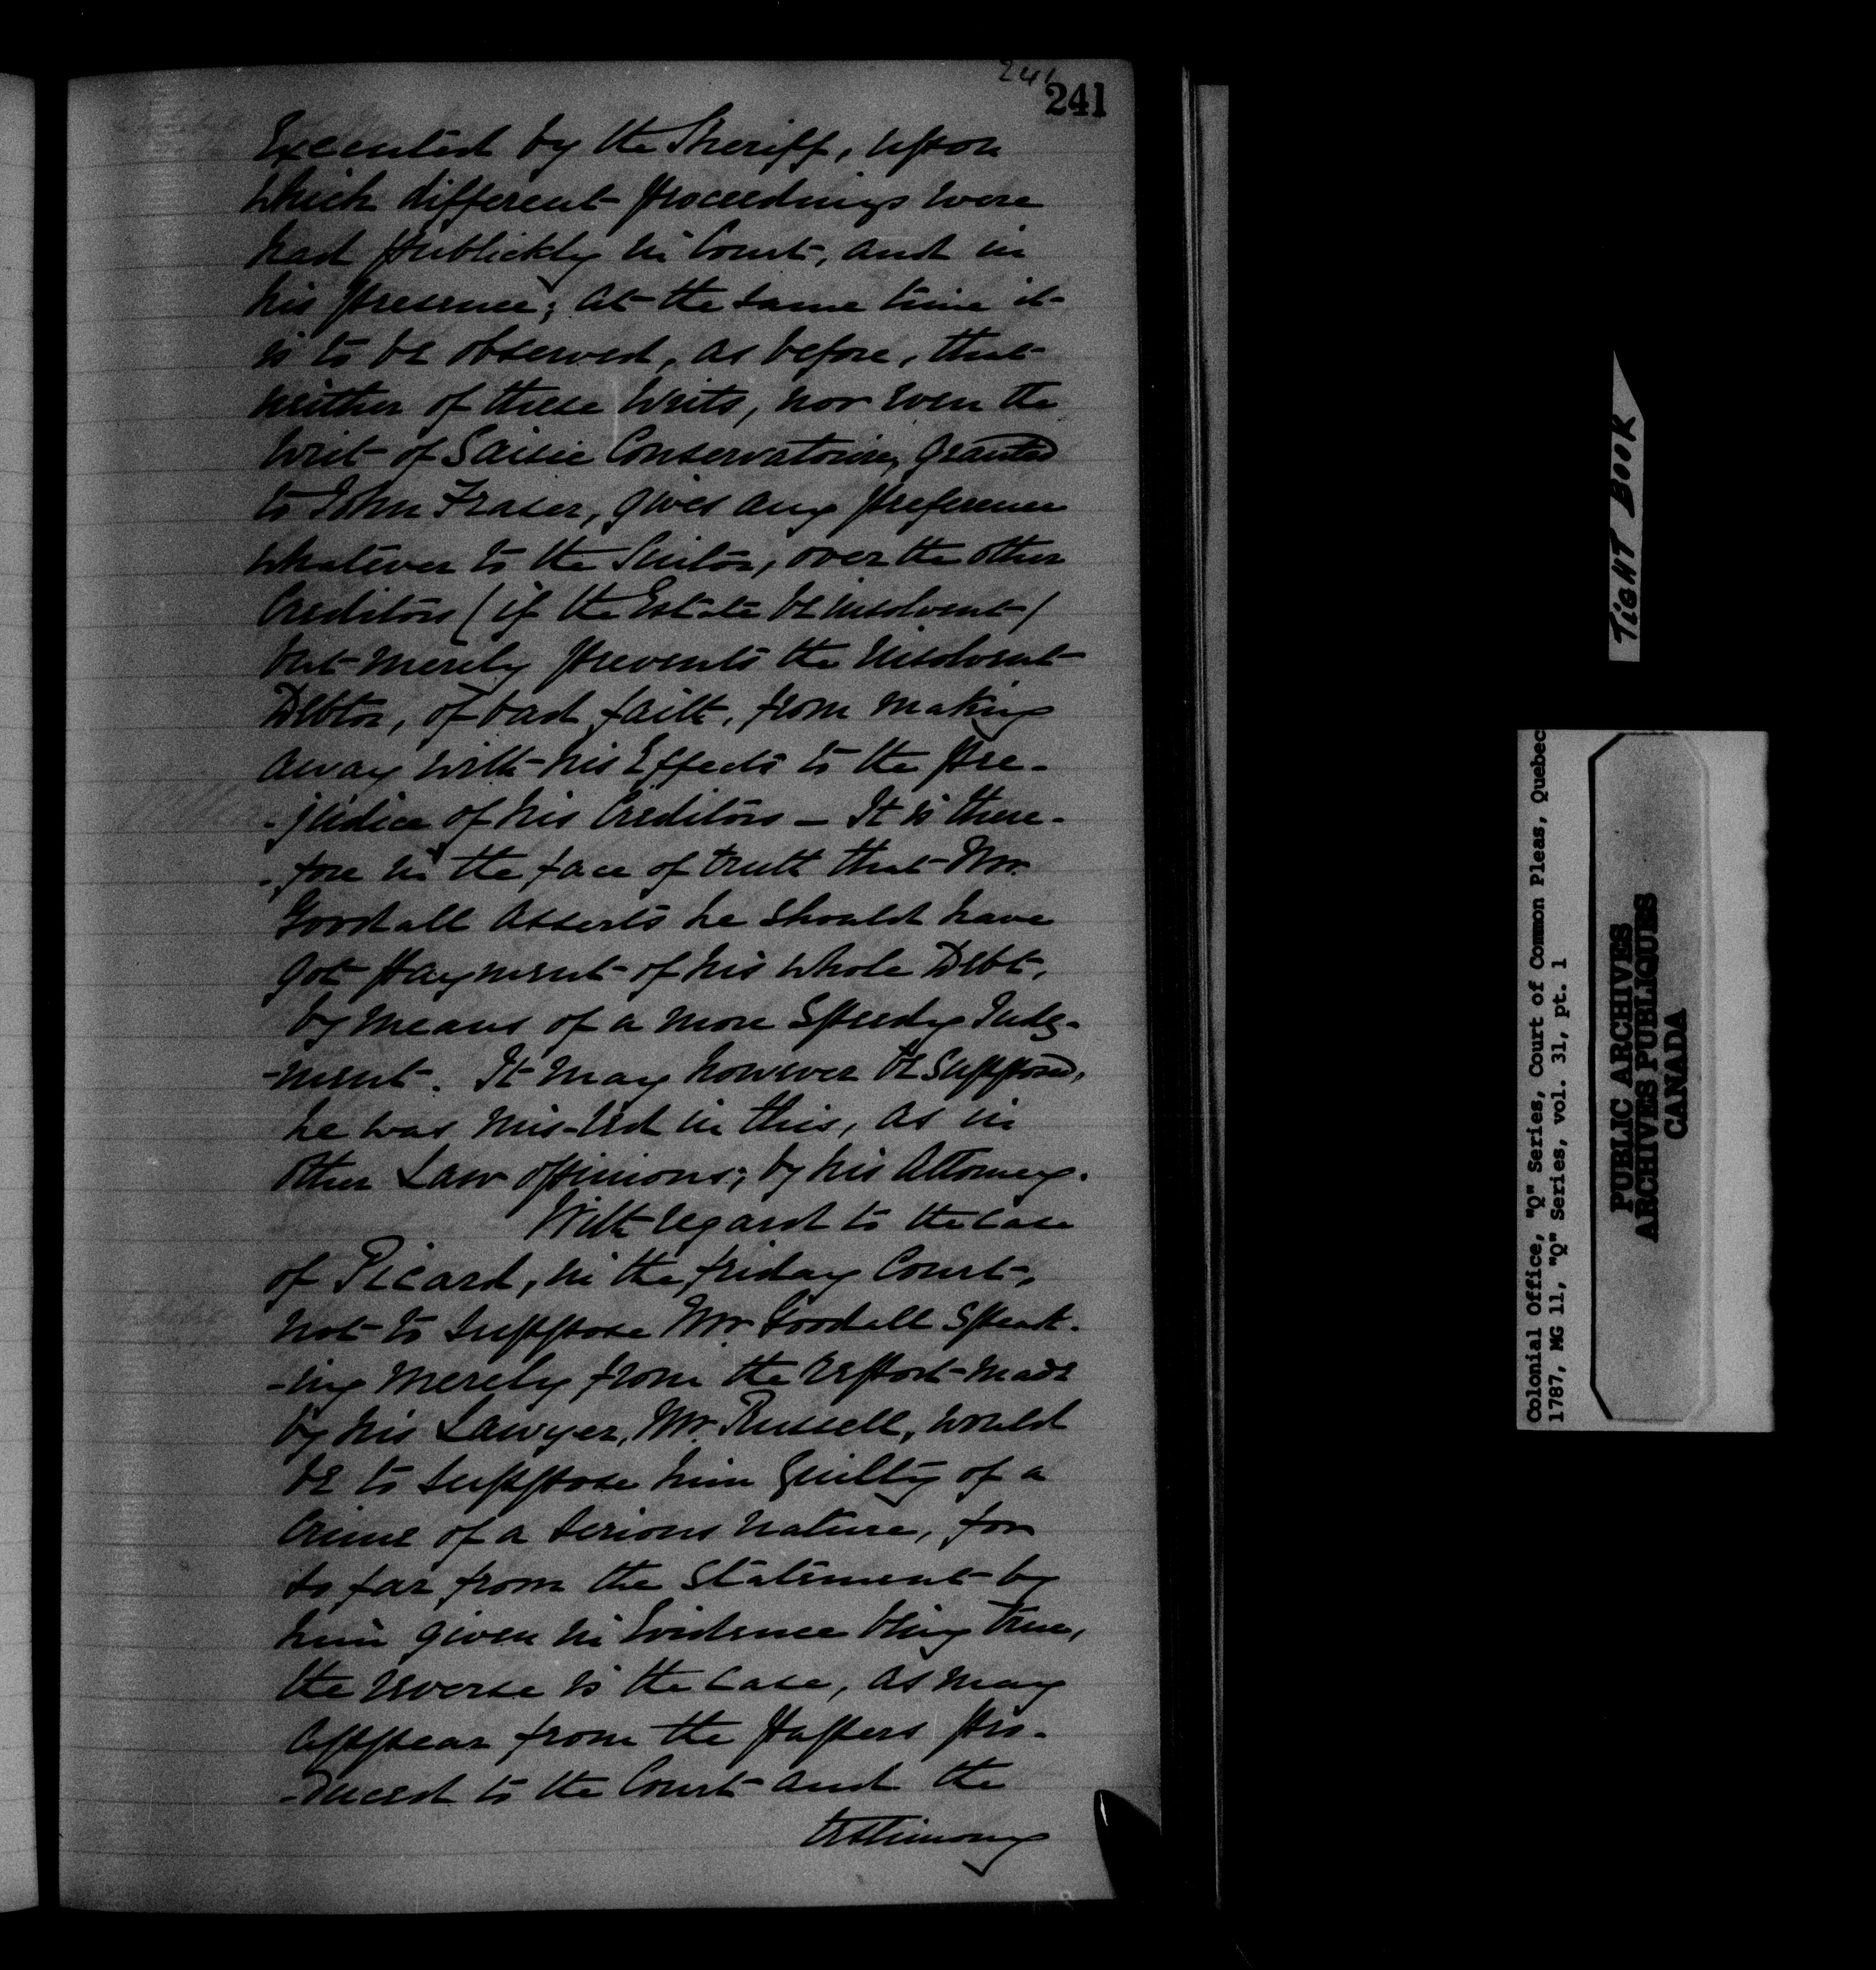 241
241
Executed by the Sheriff, upon
which different proceedings were
had publickly in Court, and in
his presence; at the same time it
is to be observed, as before, that
neither of these Writs, nor even the
Writ of Saisie Conservatoire, granted
to John Fraser, gives any preference
whatever to the Suitor, over the other
Creditors (if the Estate be insolvent)
but merely prevents the insolvent
Debtor, of bad faith, from making
away with his Effects to the pre-
-judice of his Creditors — It is there-
-fore in the face of truth that Mr.
Goodall asserts he should have
got payment of his whole Debt,
by means of a more Speedy Judg-
-ment. It may however be supposed,
he was mis-led in this, as in
other Law opinions, by his Attorney.
With regard to the case
of Picard, in the friday Court,
not to suppose Mr Goodall speak-
-ing merely from the report made
by his Lawyer, Mr. Russell, would
be to suppose him guilty of a
Crime of a serious nature, for
so far from the Statement by
him given in Evidence being true,
the reverse is the case, as may
appear from the papers pro-
-duced to the Court and the
testimony
TIGHT BOOK
Colonial Office, "Q" Series, Court of Common Pleas, Quebec
1787, MG 11, "Q" Series, vol. 31, pt. 1
PUBLIC ARCHIVES
ARCHIVES PUBLIQUES
CANADA